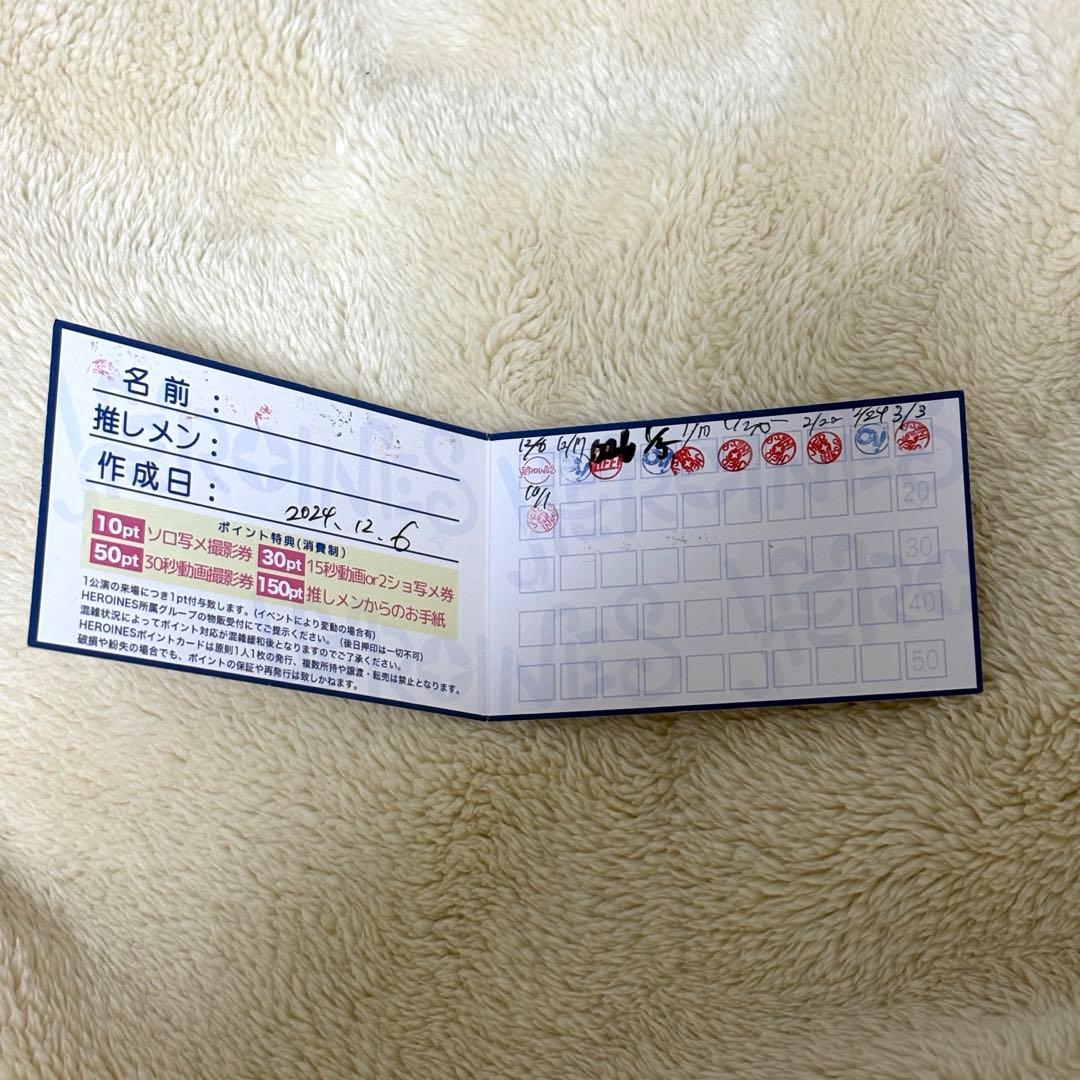 名前：
推しメン：
作成日：
2024.12.6
ポイント特典(消費制)
10pt ソロ写メ撮影券 30pt 15秒動画or2ショ写メ券
50pt 30秒動画撮影券 150pt 推しメンからのお手紙
1公演の来場につき1pt付与致します。(イベントにより変動の場合有)
HEROINES所属グループの物販受付にてご提示ください。(後日押印は一切不可)
混雑状況によってポイント対応が混雑緩和後となりますのでご了承ください。
HEROINESポイントカードは原則1人1枚の発行、複数所持や譲渡・転売は禁止となります。
破損や紛失の場合でも、ポイントの保証や再発行は致しかねます。
12/6 12/17 1226 1/5 1/17 1/25 2/22 2/24 3/3
HEROINES
10/1
20
30
40
50